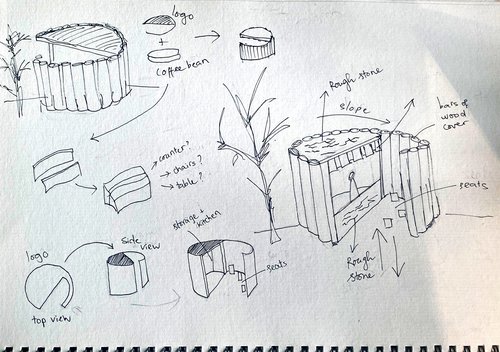 logo
+
coffee bean
Rough stone
slope
bars of
wood
cover
counter?
chairs?
table?
seats
storage +
kitchen
side
view
logo
seats
Rough
stone
top view